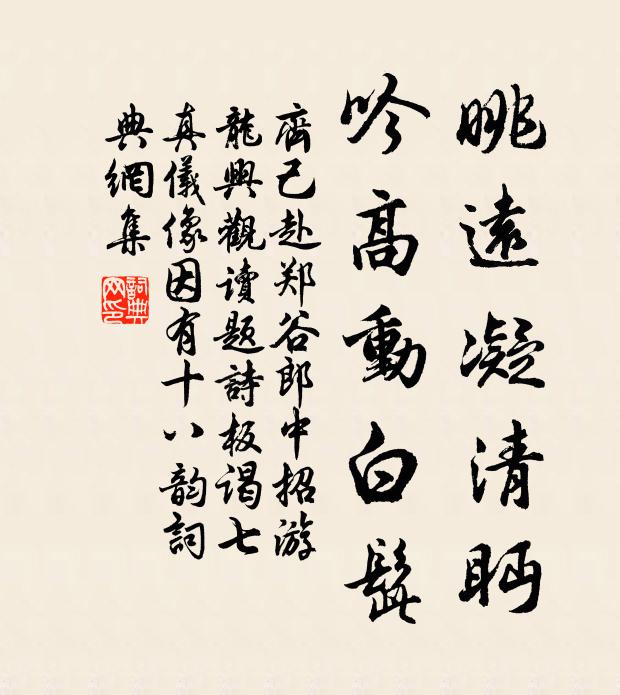 眺遠凝清眄
吟高動白髭
齊己赴郑谷郎中招游
龍興觀读题詩板谒七
真儀像因有十八韵詞
典網集
詞典
网印